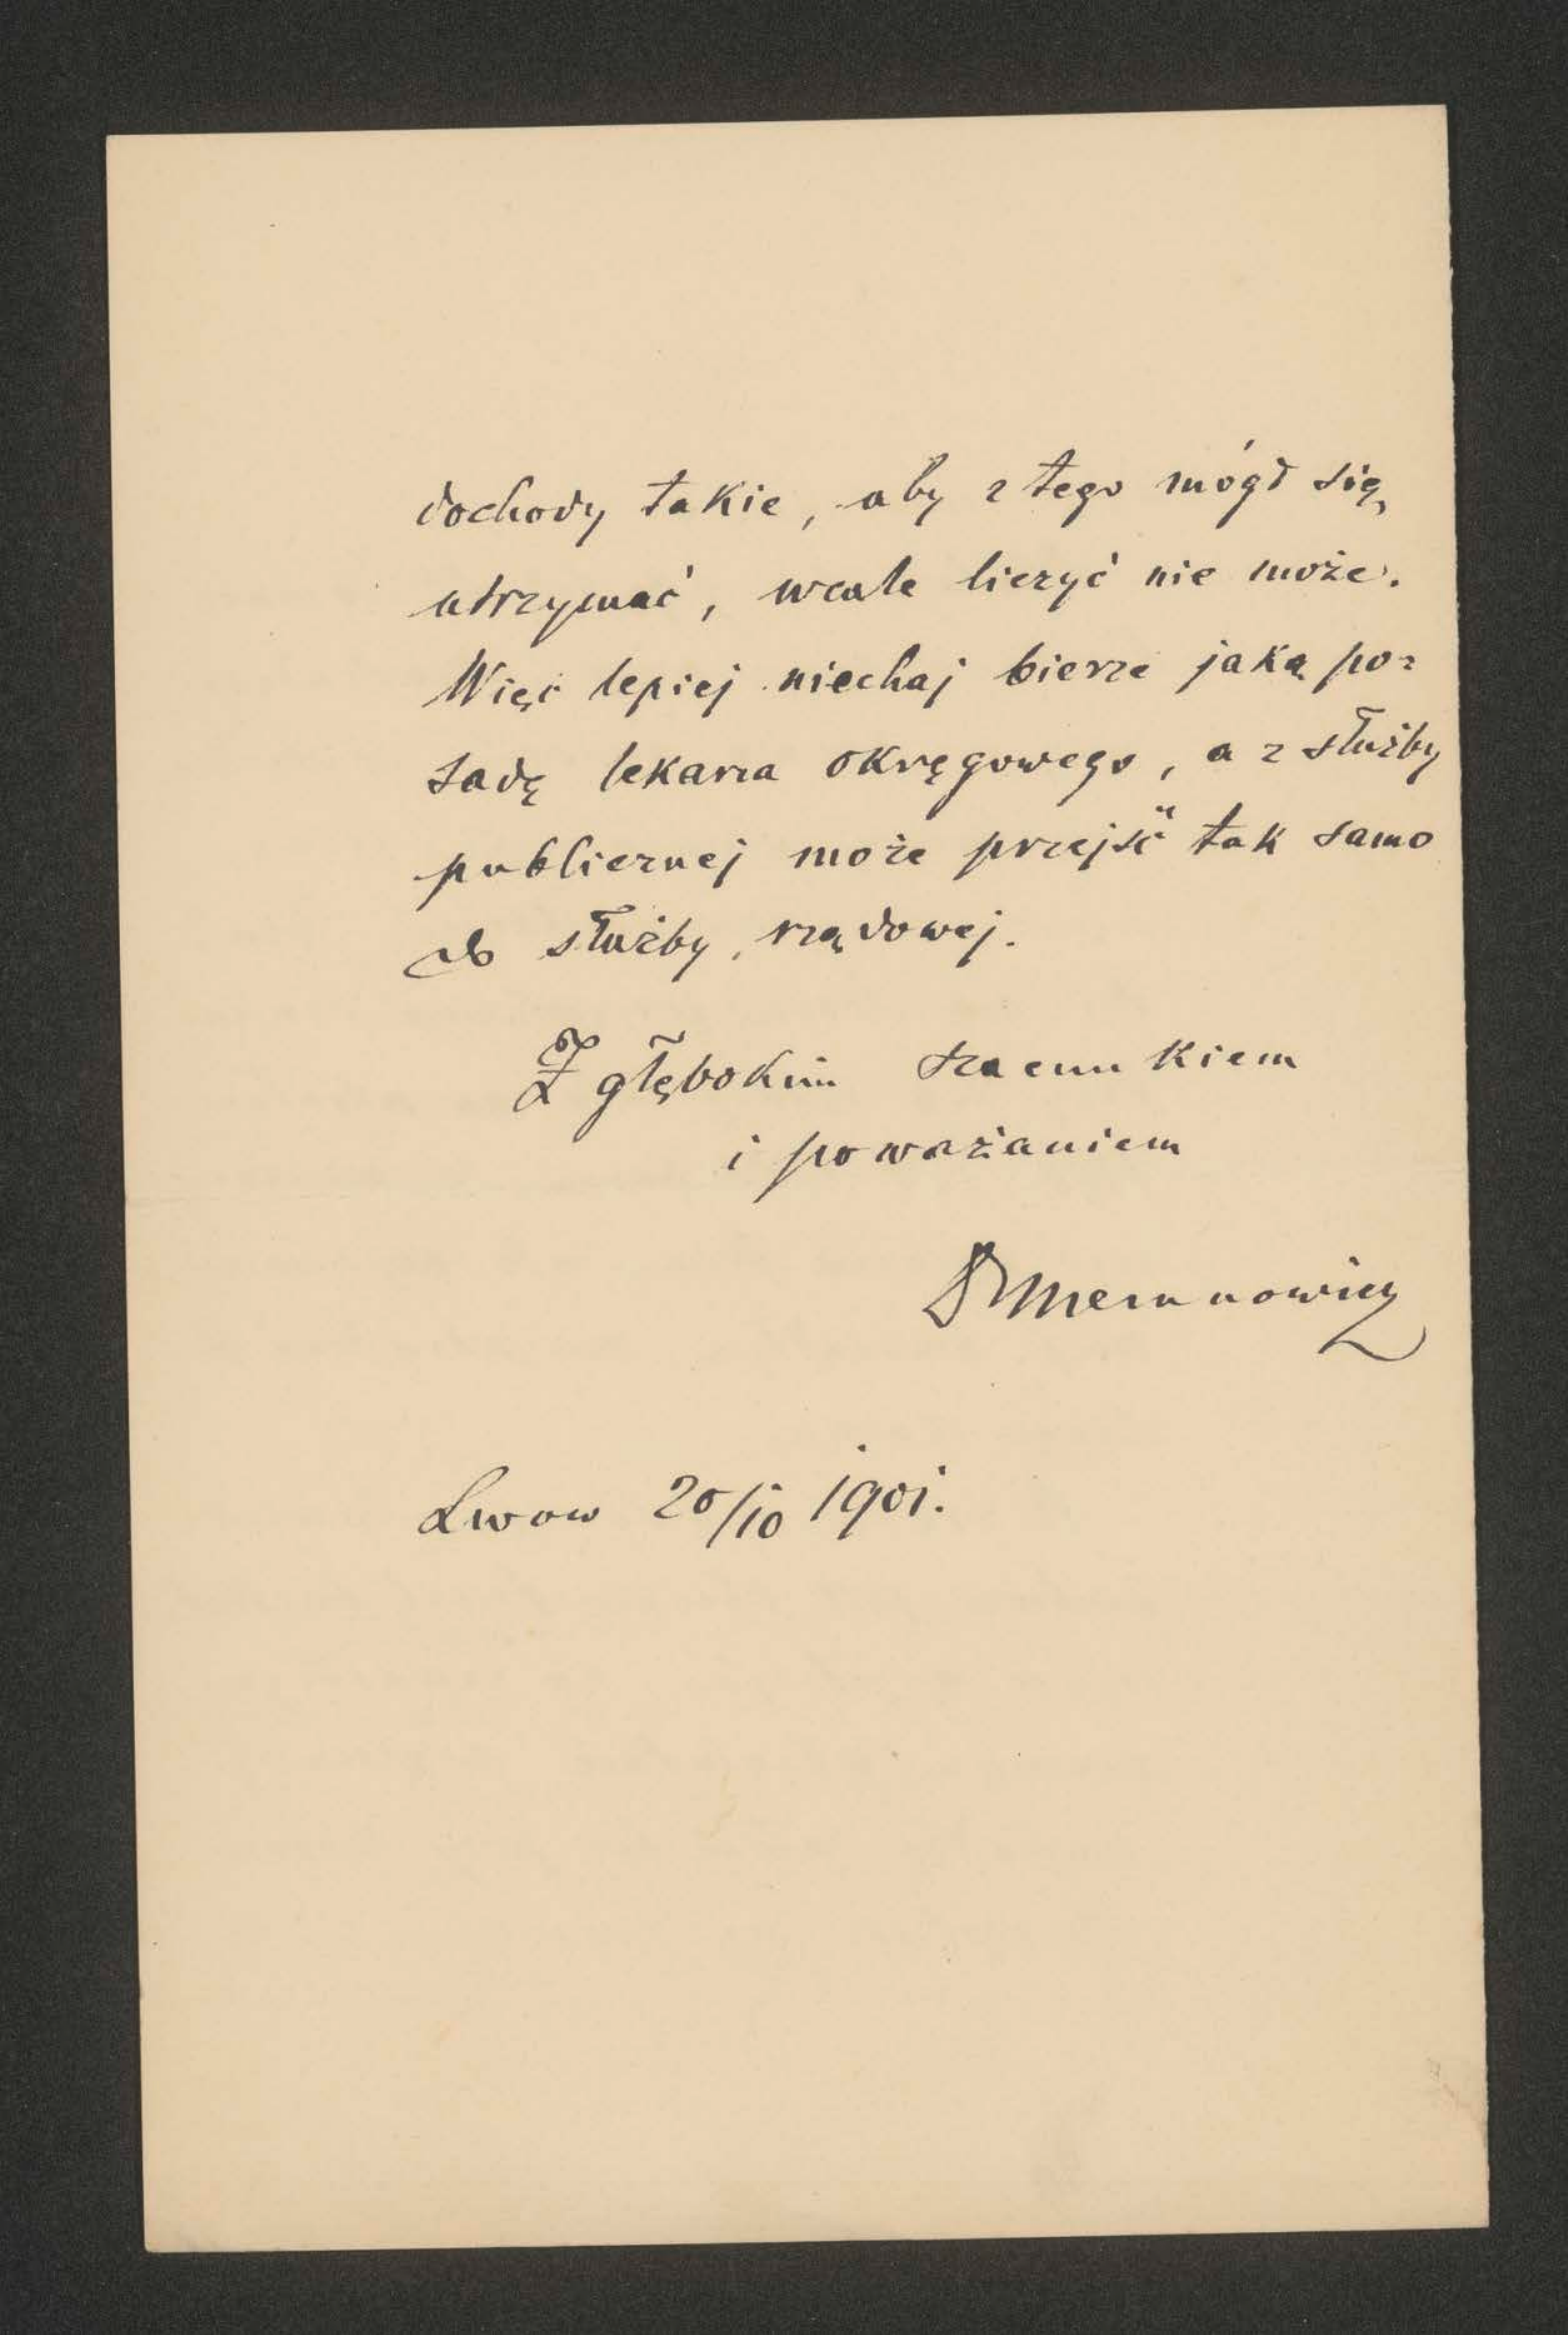 dochody takie, aby z tego mógł się
utrzymać, wcale liczyć nie może.
Więc lepiej niechaj bierze jaką po-
sadę lekarza okręgowego, a z służby
publicznej może przejść tak samo
do służby rządowej.
Z głębokim szacunkiem
i poważaniem
Dr Merunowicz
Lwow 20/10 1901.